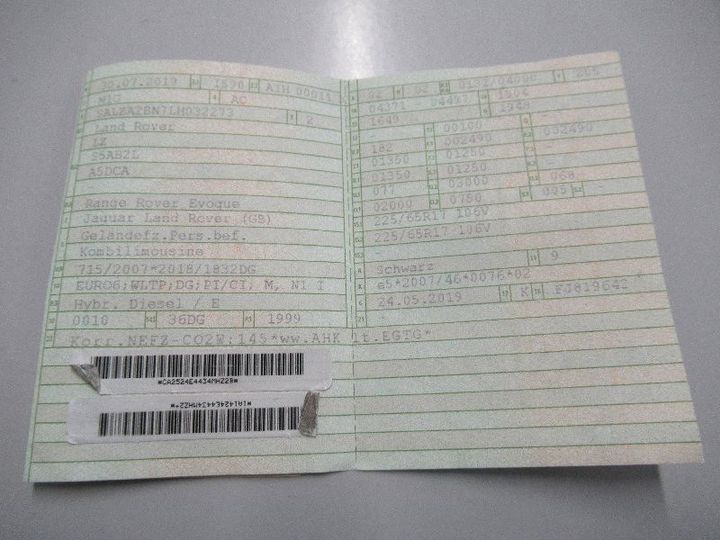 30.07.2019 1590 AIH 00011
M1G AC
SALZA2BN7LH032273 2
Land Rover
LZ
S5AB2L
A5DCA
Range Rover Evoque
Jaguar Land Rover (GB)
Geländefz.Pers.bef.
Kombilimousine
715/2007*2018/1832DG
EURO6;WLTP;DG;PI/CI, M, N1 I
Hybr. Diesel / E
0010 36DG 1999
Korr.NEFZ-CO2W:145*ww.AHK lt.EGTG*
*CA2524E4434MHZZ8*
02 02 0132/04000 205
04371 - 04497 1904
1649 1948
00100 -
182 002490 002490
01350 01250 -
01350 01250 -
077 03000 068
02000 0750 005 -
225/65R17 106V
225/65R17 106V
-
Schwarz 9
e5*2007/46*0076*02
24.05.2019 K
-